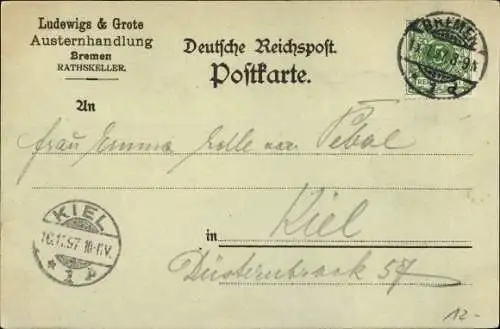 Ludewigs & Grote
Austernhandlung
Bremen
RATHSKELLER.
Deutsche Reichspost.
Postkarte.
BREMEN
8-9N
An
Frau Emma
in Kiel
Düsternbrook 57
KIEL
16.11.97 10-11V.
* 1 p
12-